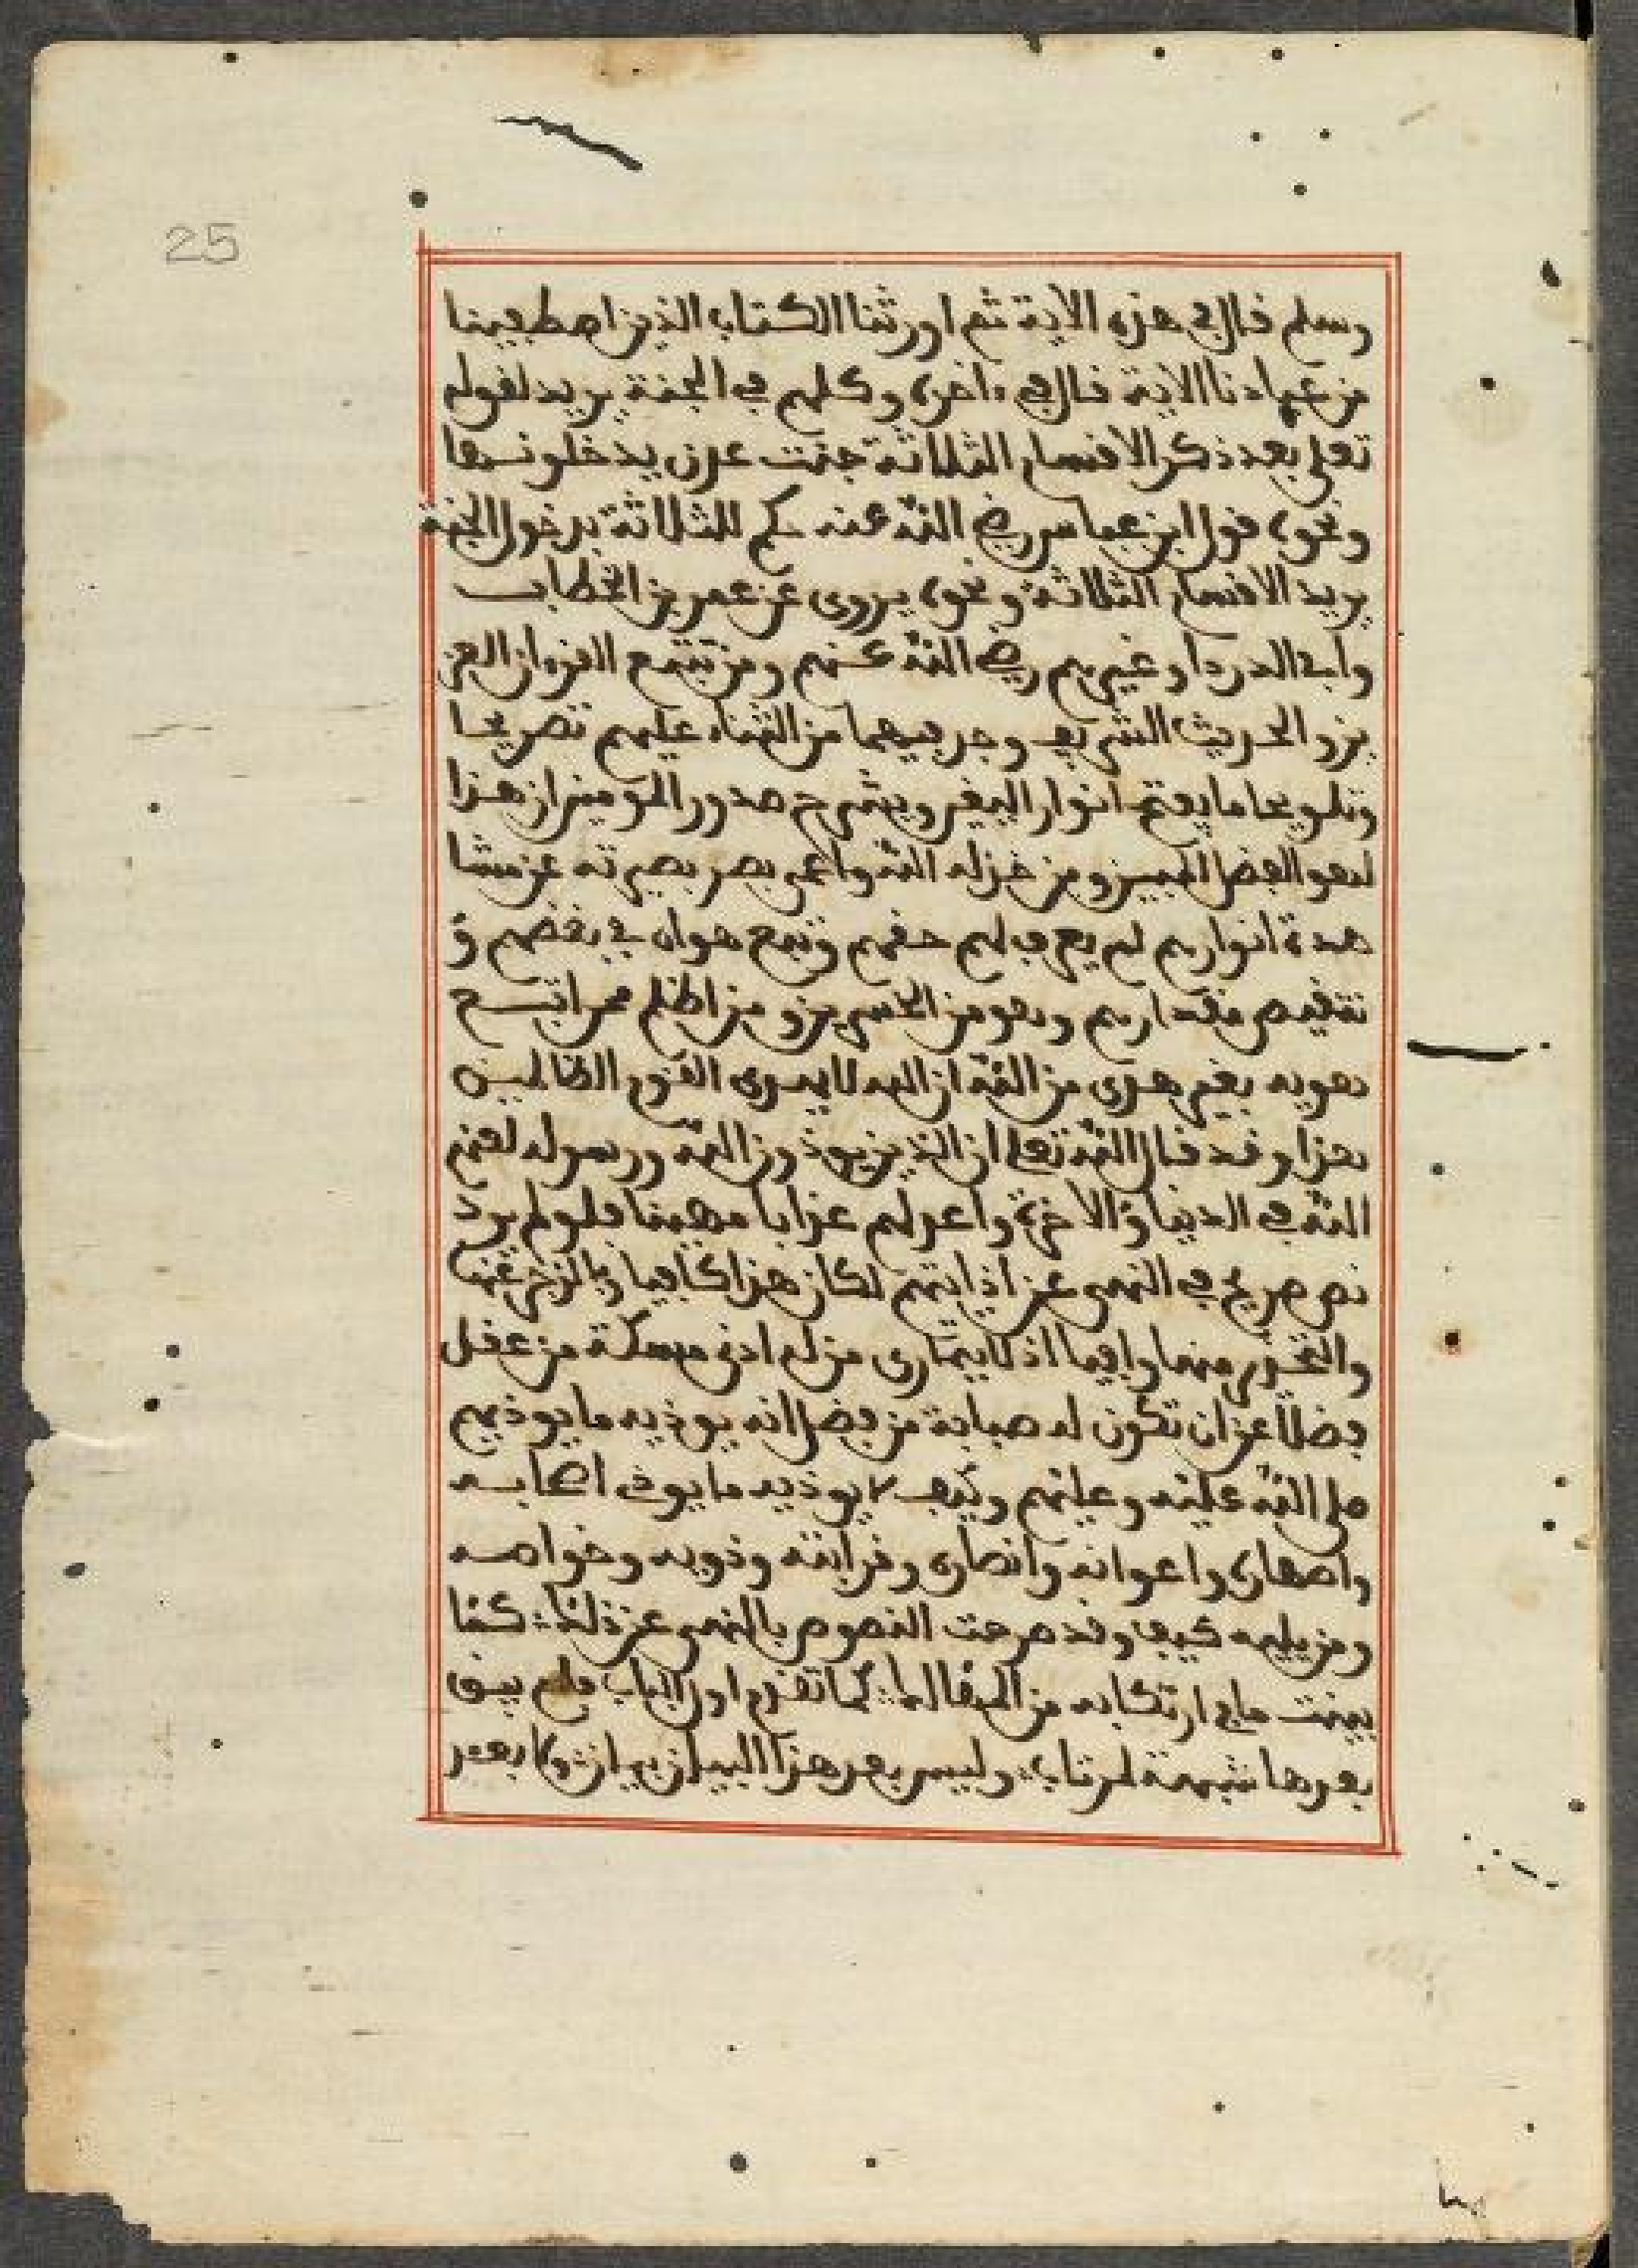 25
وسلم قال في هذه الاية ثم اورثنا الكتاب الذين اصطفينا
من عبادنا الاية قال في ءاخره وكلهم في الجنة يريد لقوله
تعلى بعد ذكر الاقسام الثلاثة جنت عدن يدخلونها
ونحوه قول ابن عباس رضي الله عنه حكم للثلاثة بدخول الجنة
يريد الاقسام الثلاثة ونحوه يروى عن عمر بن الخطاب
وابي الدرداء وغيرهم رضي الله عنهم ومن تتبع القرءان العز
يز والحديث الشريف وجد فيهما من الثناء عليهم تصريحا
وتلويحا ما يفتح انوار اليقين ويشرح صدور المومنين ان هذا
لهو الفضل المبين ومن خذله الله واعمى بصر بصيرته عن مشا
هدة انوارهم لم يعرف لهم حقهم وتبع هواه في بغضهم و
تنقيص مقدارهم وهو من الخسرين ومن اظلم ممن اتبع
هويه بغير هدى من الله ان الله لا يهدى القوم الظالمين
هذا وقد قال الله تعلى ان الذين يوذون الله ورسوله لعنهم
الله في الدنيا والاخرة واعد لهم عذابا مهينا فلو لم يرد
نص صريح في النهي عن اذايتهم لكان هذا كافيا وبالزجر عنها
والتحذير منها وافيا اذ لا يتمارى من له ادنى مسكة من عقل
فضلا عن ان تكون له صبابة من فضل انه يوذيه ما يوذيهم
صلى الله عليه وعليهم وكيف لا يوذيه ما يوذى اصحابه
واصهاره واعوانه وانصاره وقرابته وذويه وخواصه
ومن يليه كيف وقد صرحت النصوص بالنهي عن ذلك كما
بينت ما في ارتكابه من المهالك كما تقدم اول الباب فلم يبق
بعدها شبهة لمرتاب وليس بعد هذا البيان بيان ولا بعد